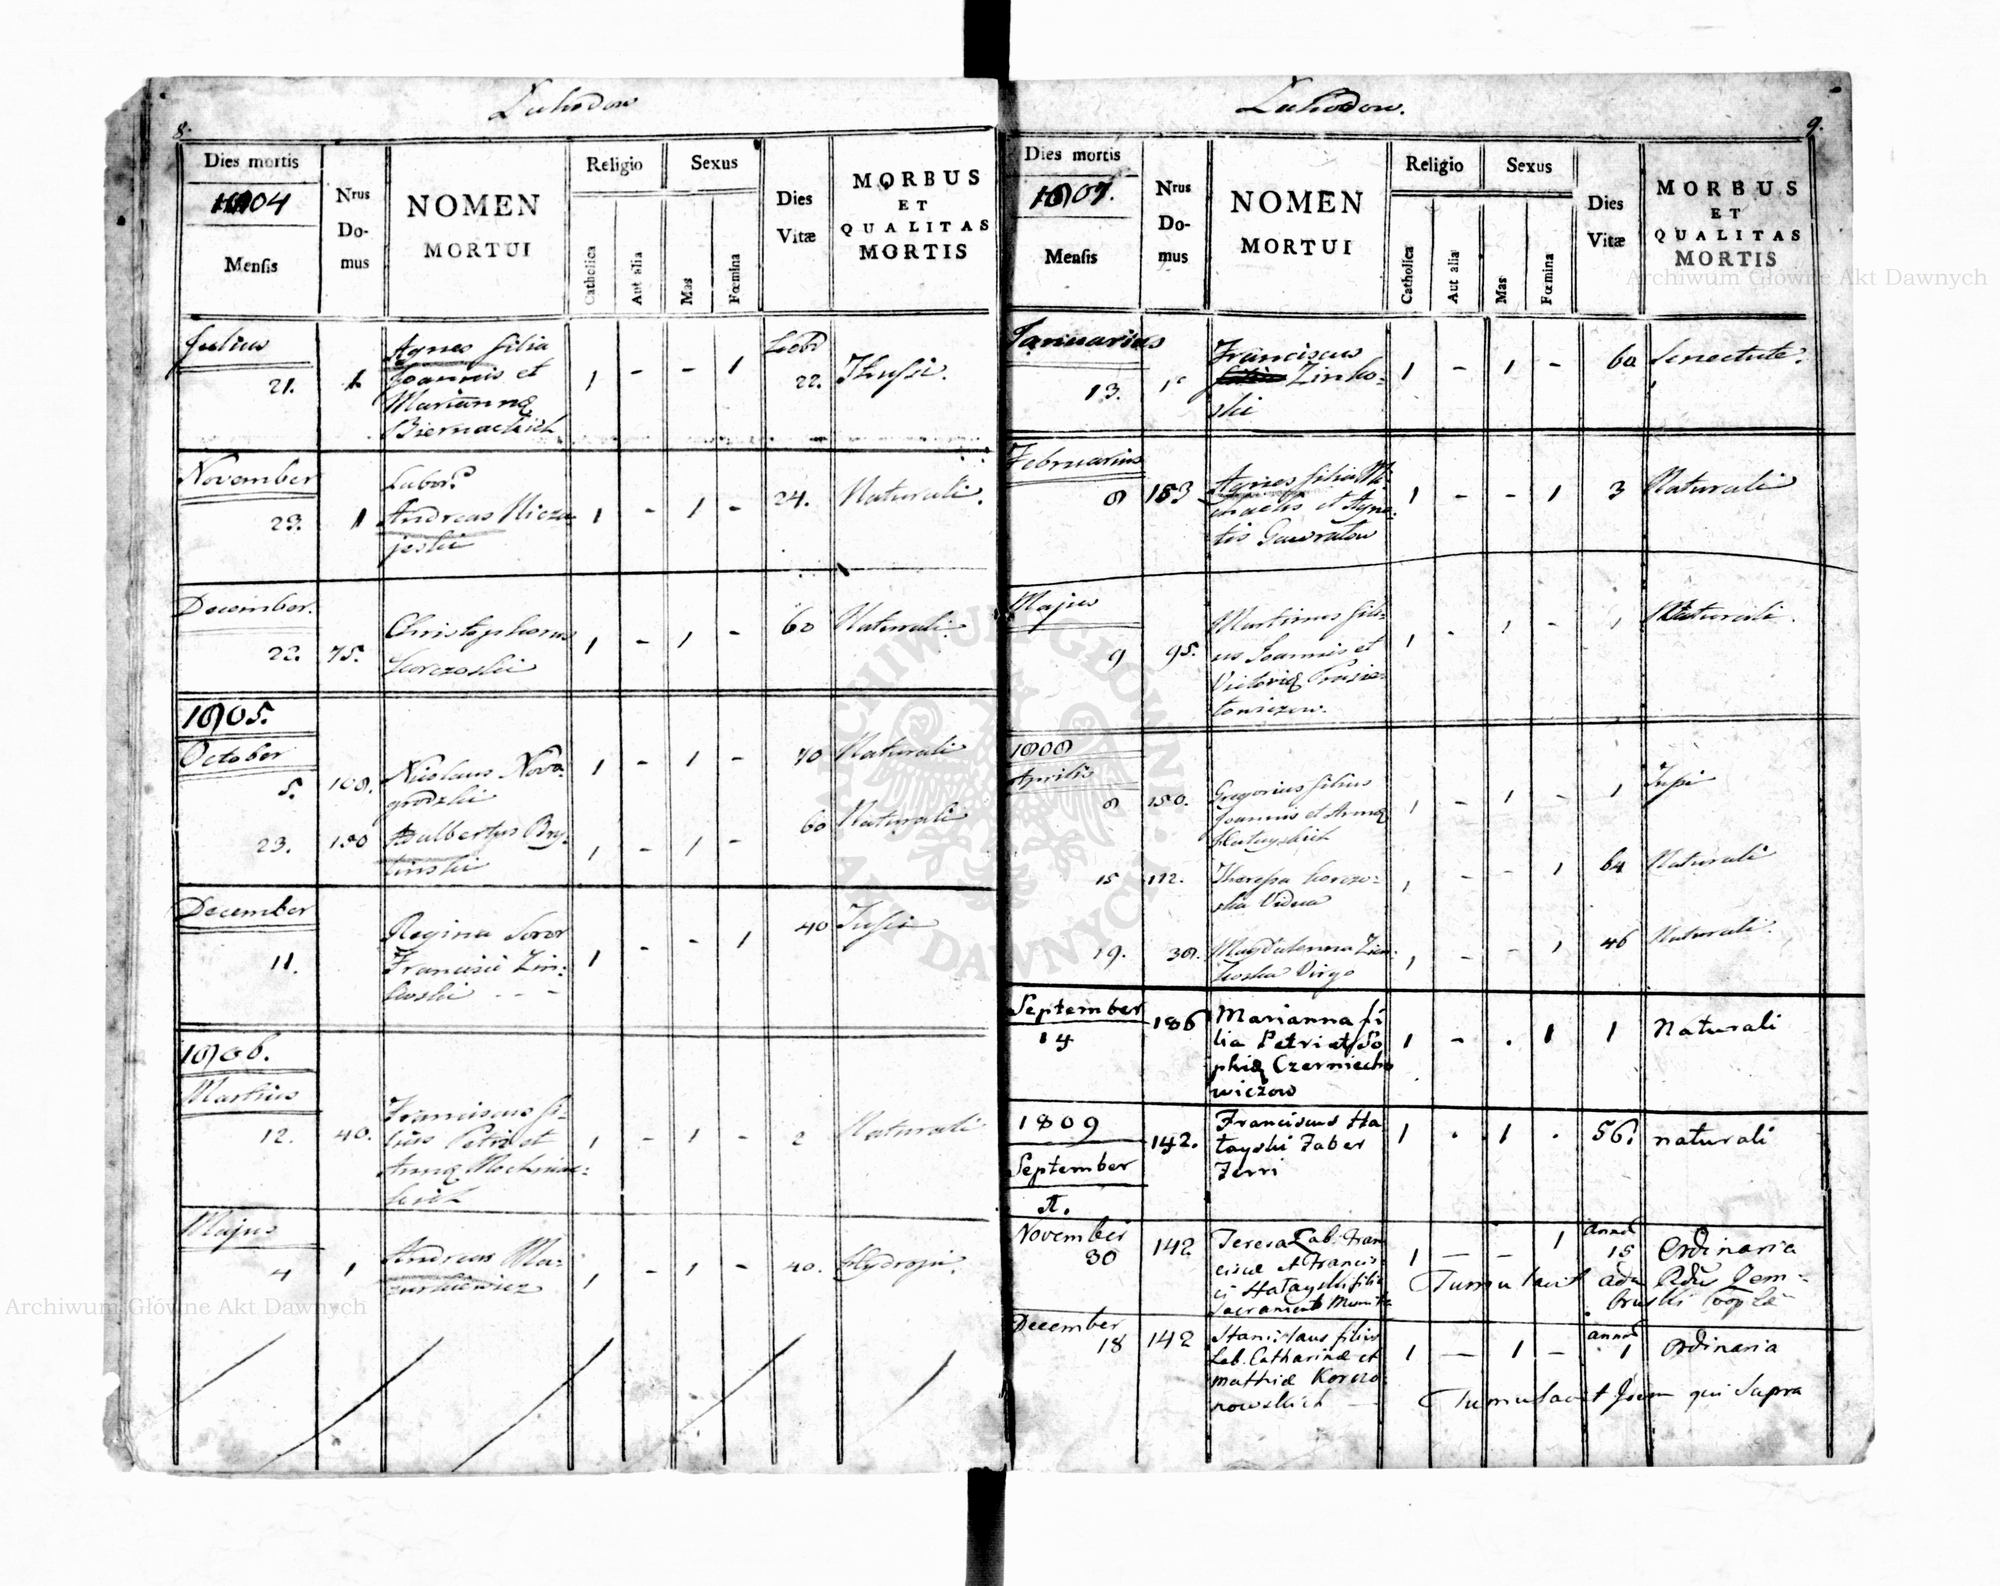 8.
Luhodow
Dies mortis
1804
Mensis
Nrus
Do-
mus
NOMEN
MORTUI
Religio
Catholica
Aut alia
Sexus
Mas
Fœmina
Dies
Vitæ
MORBUS
ET
QUALITAS
MORTIS
Julius
21. 1
Agnes filia
Joannis et
Mariannæ
Biernackich
1 - - 1
22. Thussi.
November
23. 1
Labor.
Andreas Nieza-
jeski
1 - 1 - 24. Naturali.
December.
22. 75.
Christophorus
Korczoski
1 - 1 - 60 Naturali.
1805.
October
5. 108.
Nicolaus Novo-
grodzki
1 - 1 - 70 Naturali
23. 180
Adalbertus Bry-
linski
1 - 1 - 60 Naturali
December
11.
Regina Soror
Francisci Zin-
koski - - -
1 - - 1 40 Tussi
1806.
Martius
12. 40.
Franciscus fi-
lius Petri et
Annæ
1 - 1 - 2 Naturali
Majus
4 1
Andreas Ma-
zurkiewicz
1 - 1 - 40. Hydropi.
9.
Luhodow.
Dies mortis
1807.
Mensis
Nrus
Do-
mus
NOMEN
MORTUI
Religio
Catholica
Aut alia
Sexus
Mas
Fœmina
Dies
Vitæ
MORBUS
ET
QUALITAS
MORTIS
Januarius
13.
Franciscus
Zinko-
ski
1 - 1 - 60 Senectute.
Februarius
8 183
Agnes filia Mi-
chaelis et Agne-
tis
1 - - 1 3 Naturali
Majus
9 95.
Martinus fili-
us Joannis et
Victoriæ
1 - 1 - 1 Naturali.
1808
Aprilis
8 180.
Gregorius filius
Joannis et Annæ
Hatayskich
1 - 1 - 1 Tussi
15 112.
Theressa Korczo-
ska Vidua
1 - - 1 64 Naturali
19. 38.
Magdalenna Zien-
koska Virgo
1 - - 1 46 Naturali.
September
14 186
Marianna fi
lia Petri et So
phiæ Czerniecho
wiczow
1 - . 1 1 Naturali
1809
September
142.
Franciscus Ha
tayski Faber
Ferri
1 . 1 . 56. naturali
November
30 142
Teresa Lab. Fran
ciscæ et Francis-
ci Hatayski filia
Sacramentis Munita
1 - - 1
annor
15 Ordinaria
Tumulavit
December
18 142
Stanislaus filius
Lab. Catharinæ et
Mathiæ Korczo-
nowskich
1 - 1 -
annor
1 Ordinaria
Tumulavit Idem qui Supra
Archiwum Główne Akt Dawnych
Archiwum Główne Akt Dawnych
ARCHIWUM GŁÓWNE
AKT DAWNYCH